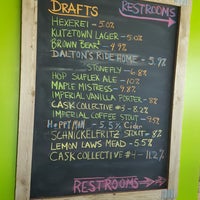 DRAFTS
RESTROOMS
HEXEREI - 5.0%
KUTZTOWN LAGER - 5.0%
BROWN BEAR! - 4.9%
DALTON'S RIDE HOME - 5.9%
STONEFLY - 6%
HOP SUPLEX ALE - 10%
MAPLE MISTRESS - 9.8%
IMPERIAL VANILLA PORTER - 8%
CASK COLLECTIVE #3 - 8.2%
IMPERIAL COFFEE STOUT - 9.5%
HOPPY MM - 5.5% Cider
SCHNICKELFRITZ STOUT - 8%
LEMON LAWS MEAD - 5.5%
CASK COLLECTIVE #4 - 11.2%
RESTROOMS →→